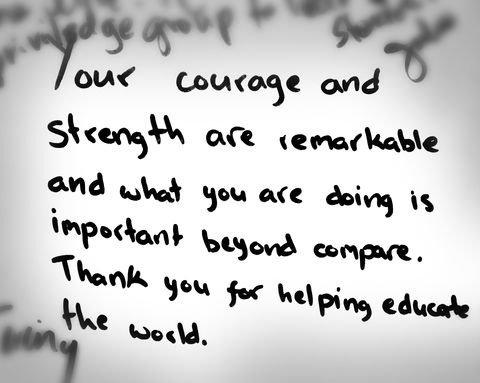 group to
Your courage and
strength are remarkable
and what you are doing is
important beyond compare.
Thank you for helping educate
the world.